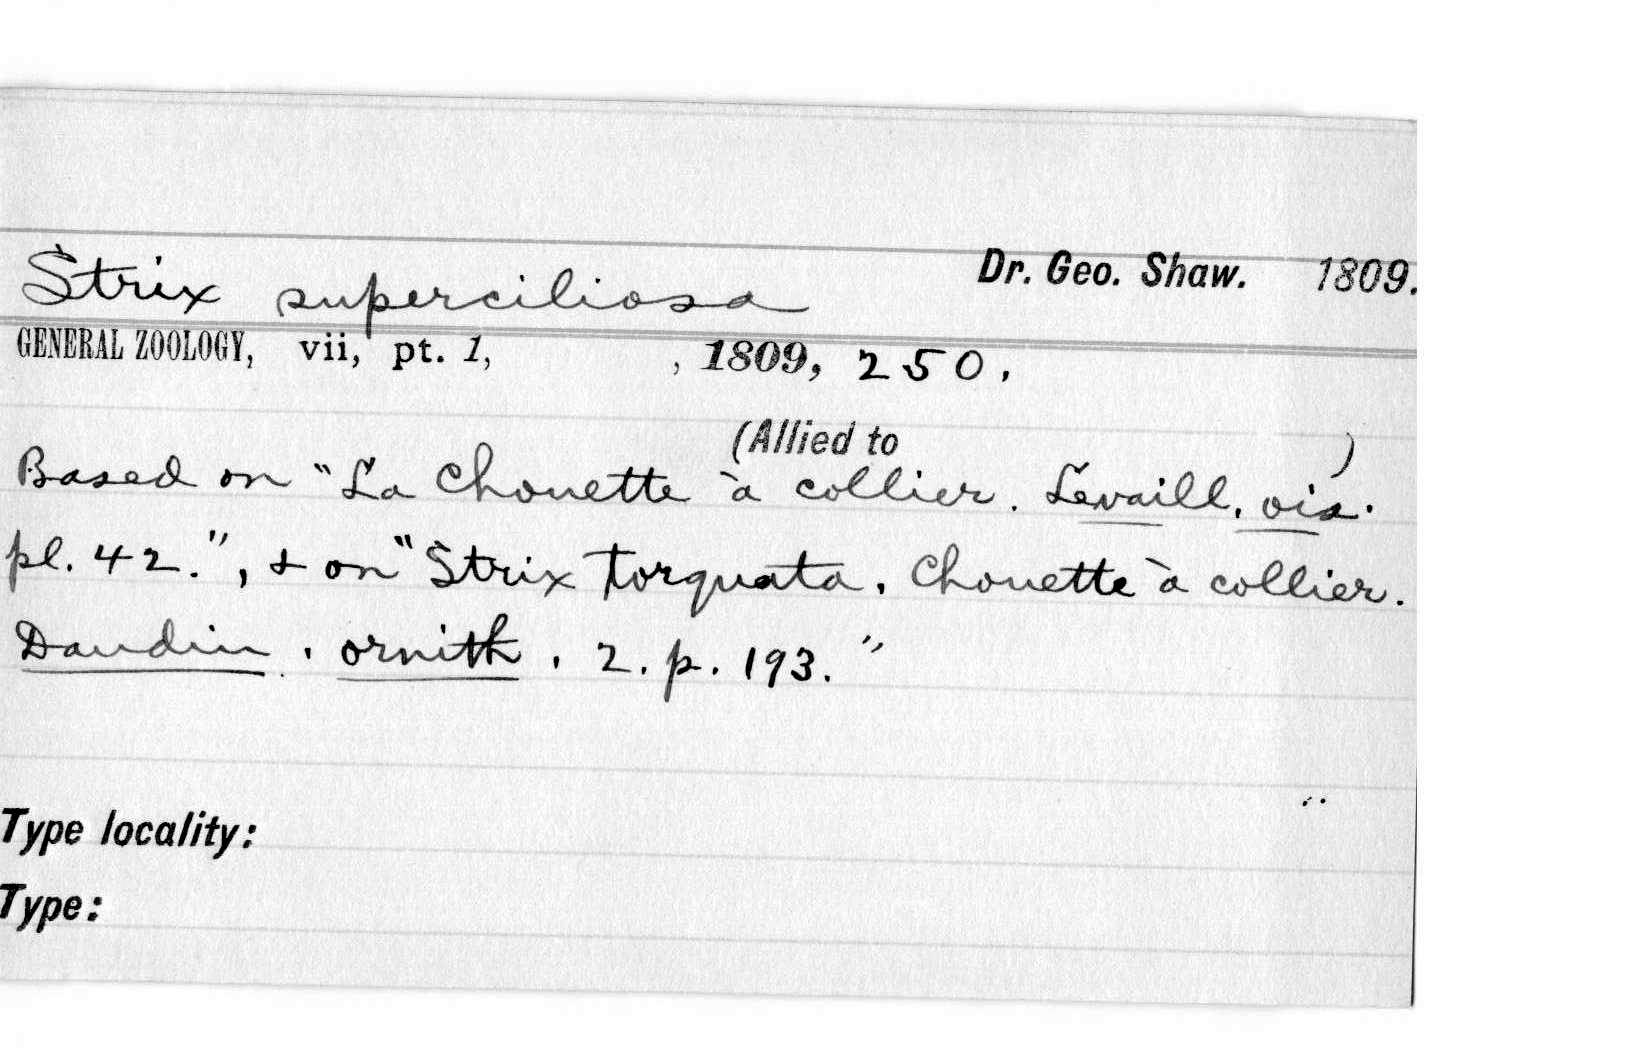 Strix superciliosa Dr. Geo. Shaw. 1809.
GENERAL ZOOLOGY, vii, pt. 1, , 1809, 250.
(Allied to )
Based on "La Chouette à collier. Levaill. ois.
pl. 42.", & on "Strix torquata. Chouette à collier.
Daudin. ornith. 2. p. 193."
Type locality:
Type: